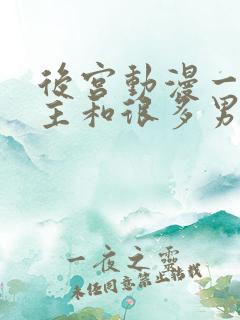 後宮動漫一
主和很多男
一夜之靈
未经同意禁止转载